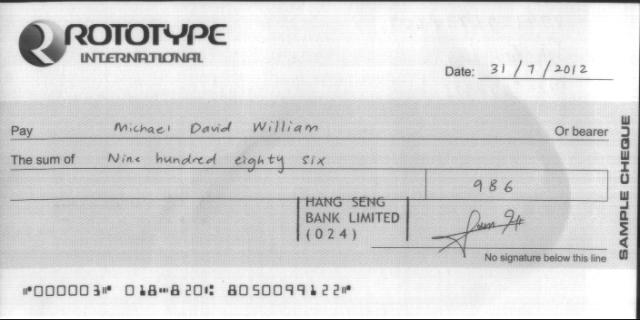 ROTOTYPE
INTERNATIONAL
Date: 31/7/2012
Pay Michael David William Or bearer
The sum of Nine hundred eighty six
986
HANG SENG
BANK LIMITED
(024)
No signature below this line
SAMPLE CHEQUE
⑈000003⑈ 018⑉820⑆ 8050099122⑈